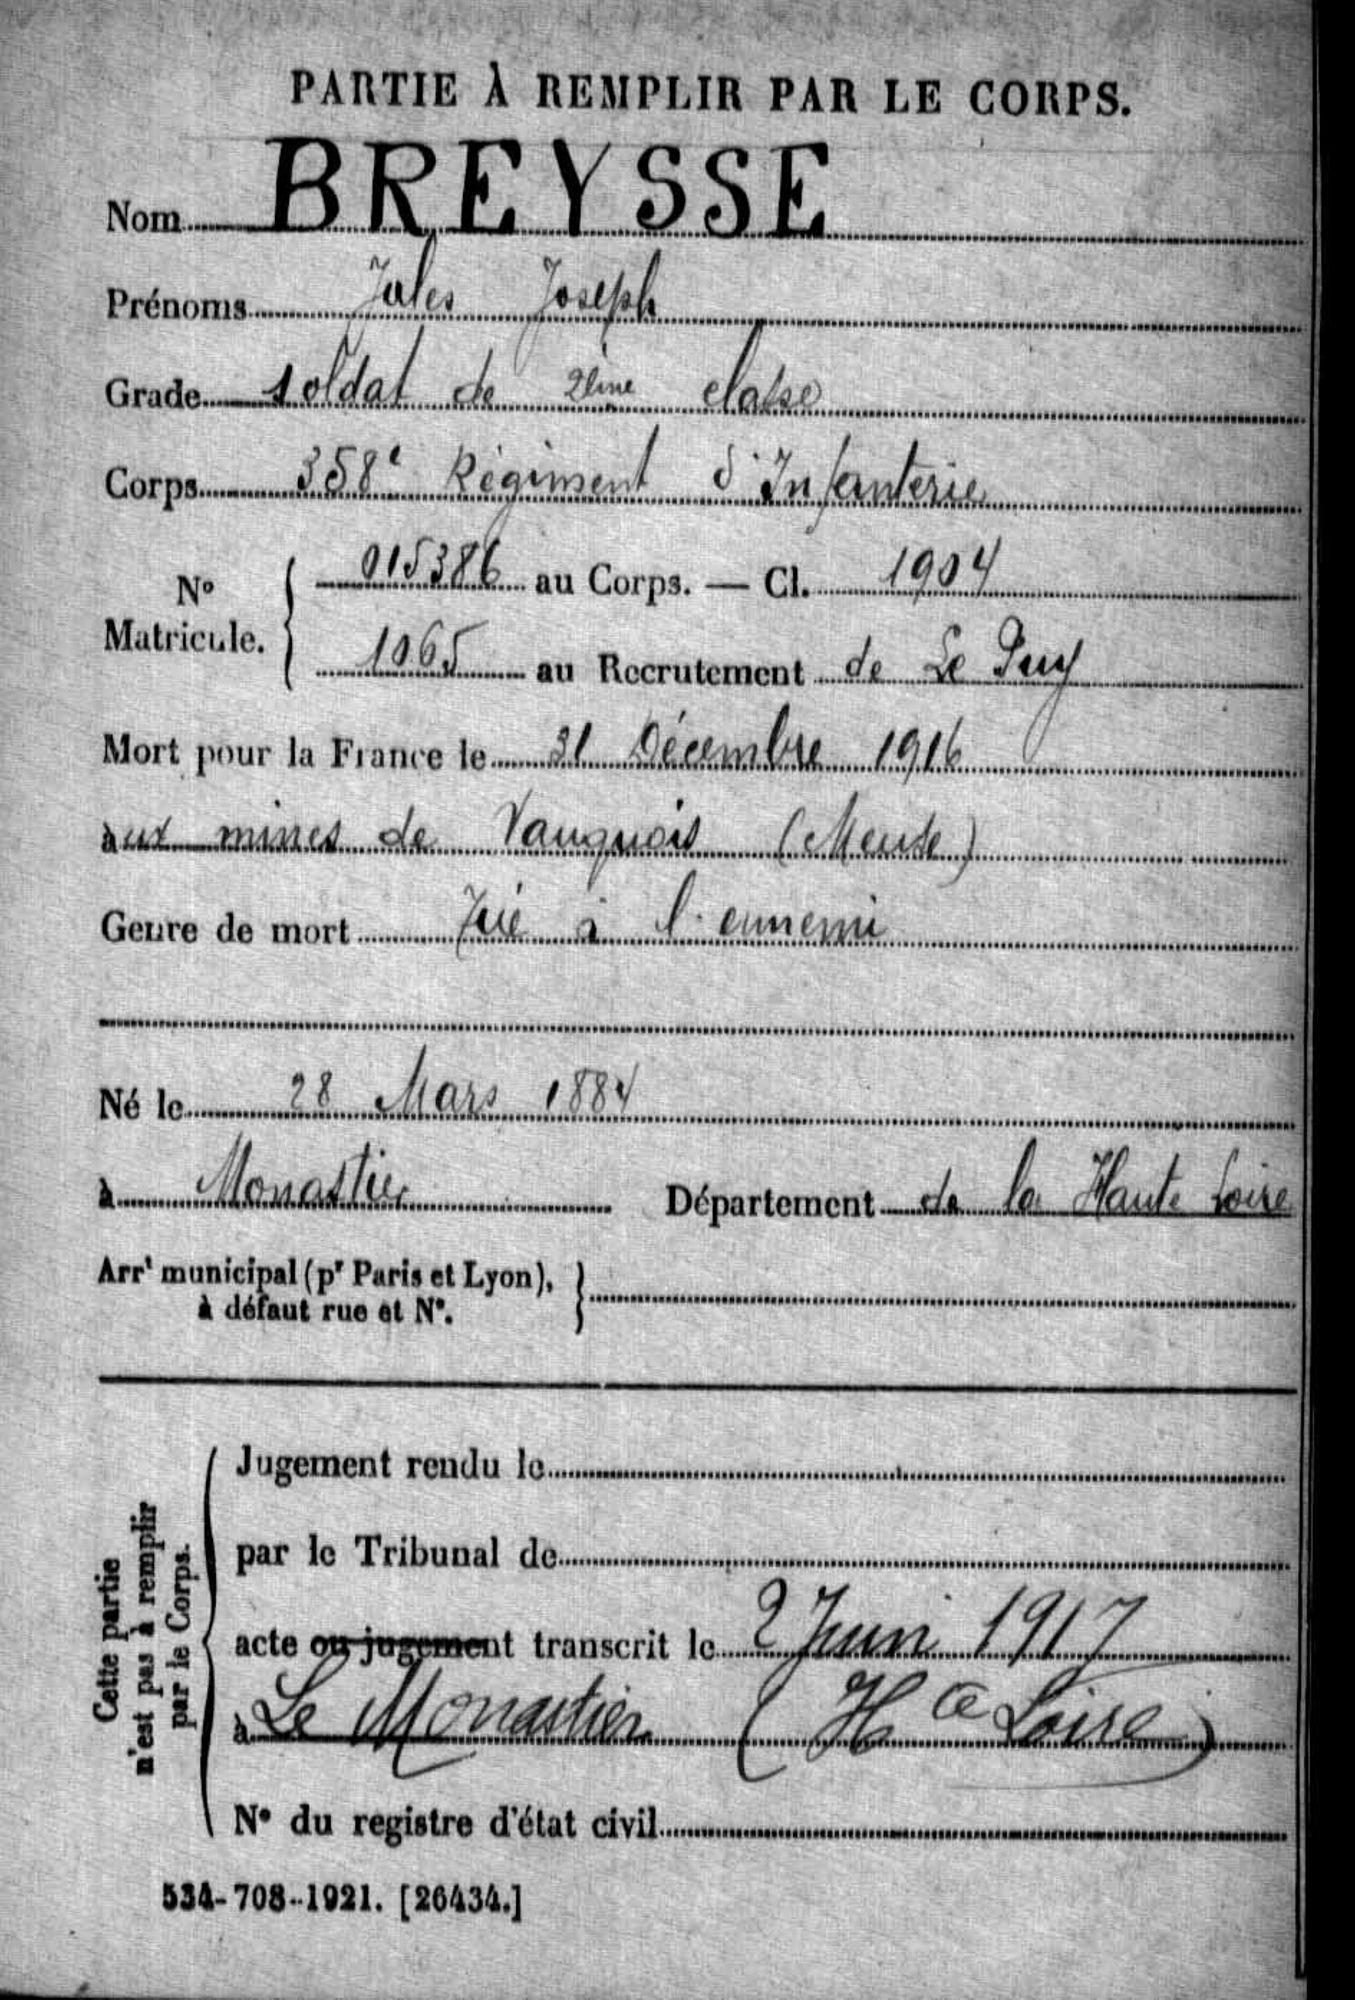 PARTIE À REMPLIR PAR LE CORPS.
Nom BREYSSE
Prénoms Jules Joseph
Grade soldat de 2ème classe
Corps 358e Régiment d'Infanterie
No Matricule. 015386 au Corps. — Cl. 1904
1065 au Recrutement de Le Puy
Mort pour la France le 31 Décembre 1916
aux mines de Vauquois (Meuse)
Genre de mort Tué à l'ennemi
Né le 28 Mars 1884
à Monastier Département de la Haute Loire
Arrt municipal (pr Paris et Lyon),
à défaut rue et No.
Cette partie
n'est pas à remplir
par le Corps.
Jugement rendu le
par le Tribunal de
acte ou jugement transcrit le 2 Juin 1917
à Le Monastier (Hte Loire)
No du registre d'état civil
534-708-1921. [26434.]